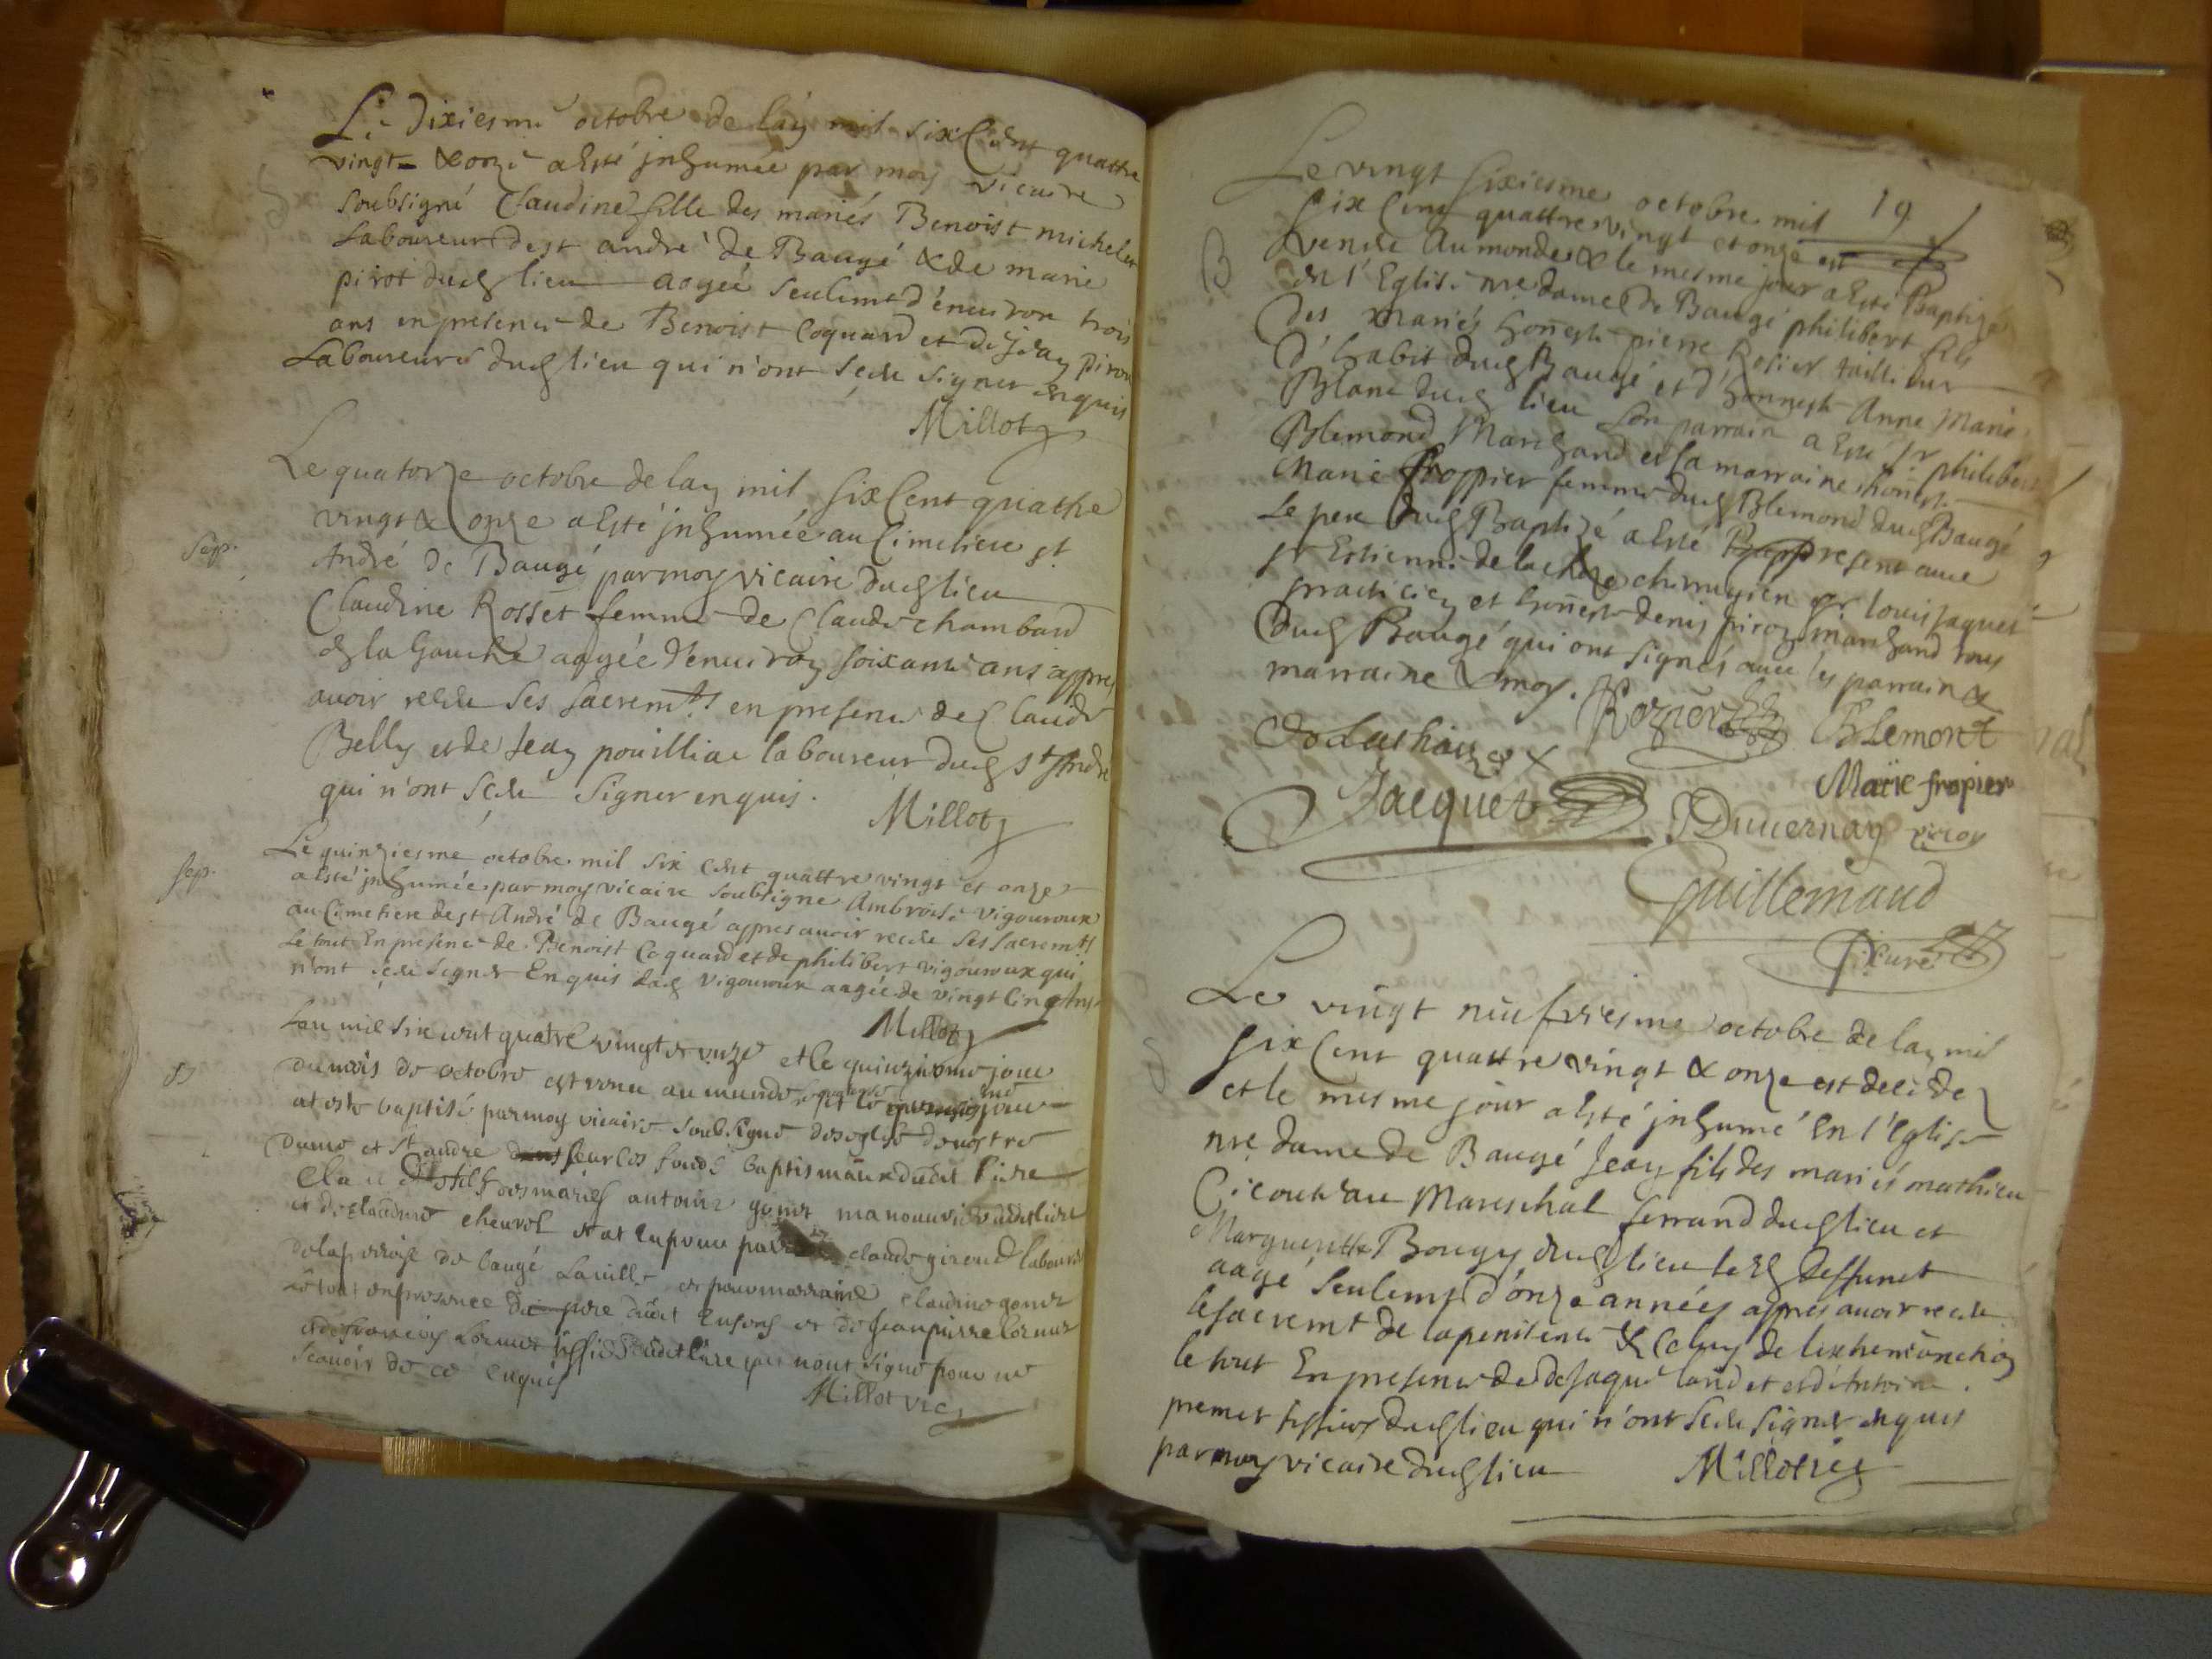 Le dixiesme octobre de lan mil six Cent quattre
vingt & onze a esté inhumée par moy vicaire
soubsigné Claudine fille des mariés Benoist michelet
Laboureur de st andré de Baugé & de marie
pirot dud lieu aagée seulemt d'enuiron trois
ans en presence de Benoist Coquard et de Jean Piron
Laboureurs dud lieu qui n'ont sceu signer enquis
Millot
Le quatorze octobre de lan mil six Cent quatre
vingt & onze a esté inhumée au Cimetiere st
sep.
André de Baugé par moy vicaire dud lieu
Claudine Rosset femme de Claude chamband
de la Gouche aagée d'enuiron soixante ans appres
auoir receu ses sacremts en presence de Claude
Belly et de Jean pouilliac laboureur dud st André
qui n'ont sceu signer enquis.
Millot
Le quinziesme octobre mil six cent quattre vingt et onze
sep.
a esté inhumée par moy vicaire soubsigne Ambroise vigouroux
au Cimetiere de st André de Baugé appres auoir receu ses sacremts
Le tout En presence de Benoist Coquard et de philibert vigouroux qui
n'ont sceu signer Enquis lad vigouroux aagée de vingt cinq Ans
Millot
Lan mil six cent quatre vingt et onze et le quinzieme jour
du mois de octobre est venu au monde et le jour
a esté baptisé par moy vicaire soubsigné des eglise de nostre
dame et st andre sur les fonds baptismaux dudit lieu
Claude fils des mariés antoine gonet manouurier dudit lieu
et de claudine cheurel et at eu pour parrain claude giroud laboureur
de la parroisse de baugé La uille et pour marraine claudine gonet
le tout en presence du pere dudit enfans et de Jean pierre Cornet
et de francois Cornet tissier dudit lieu qui nont signé pour ne
scauoir de ce enquis
Millot vic
19
Le vingt sixiesme octobre mil
six Cent quattre vingt et onze est
B
venu Au monde & le mesme jour a esté Baptizé
en l'Eglise nre dame de Baugé philibert fils
des mariés honneste pierre Rosier tailleur
d'habit dud Baugé et d'honneste Anne Marie
Blanc dud lieu son parrain a esté sr philibert
Blemond Marchand et sa marraine honneste
Marie froppier femme dud Blemond dud Baugé
Le pere dud Baptizé a esté present auec
sr Estienne de lachize chirurgien sr louis Jaquet
praticien et honneste denis piron marchand tous
dud Baugé qui ont signés auec les parrain &
marraine & moy.
Rozier
Blemont
Delachaize
Marie fropier
Jacquet
Duuernay
piron
Guillemaud
Curé
Le vingt neufviesme octobre de lan mil
six Cent quattre vingt & onze est decede
et le mesme jour a esté inhumé En l'Eglise
nre dame de Baugé Jean fils des mariés mathieu
Cicouteau Mareschal ferrand dud lieu et
Margueritte Bougy dud lieu led deffunct
aagé seulemt d'onze années appres auoir receu
le sacremt de la penitence & Celuy de lextremonction
le tout En presence de Jaque land et et d'Antoine
premet tissier dud lieu qui n'ont sceu signer enquis
par moy vicaire dud lieu
Millot vic